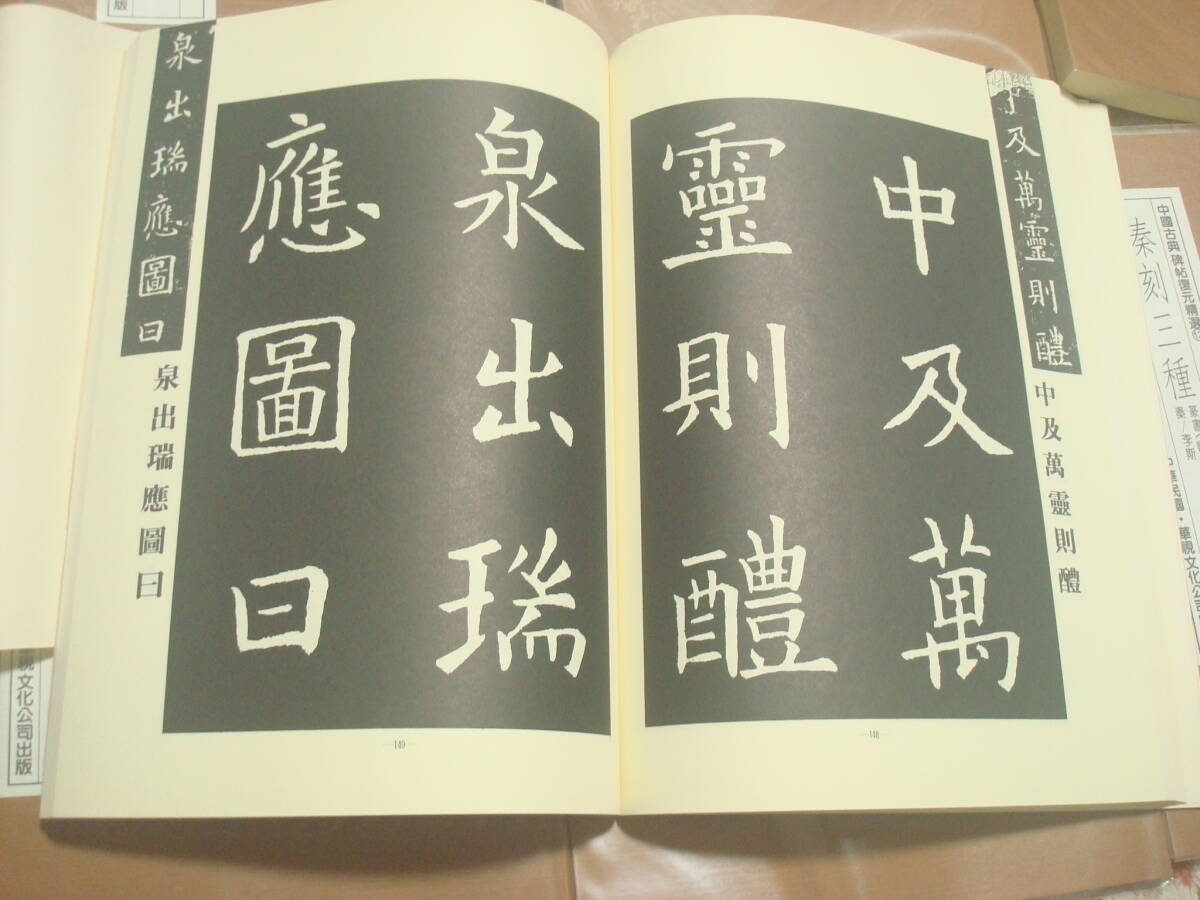 中及萬
靈則醴
中及萬靈則醴
及萬靈則醴
148
泉出瑞
應圖曰
泉出瑞應圖曰
泉出瑞應圖曰
149
中國古典碑帖復元
秦刻三種
秦/李斯
中華民國·華視文化公司
視文化公司出版
版